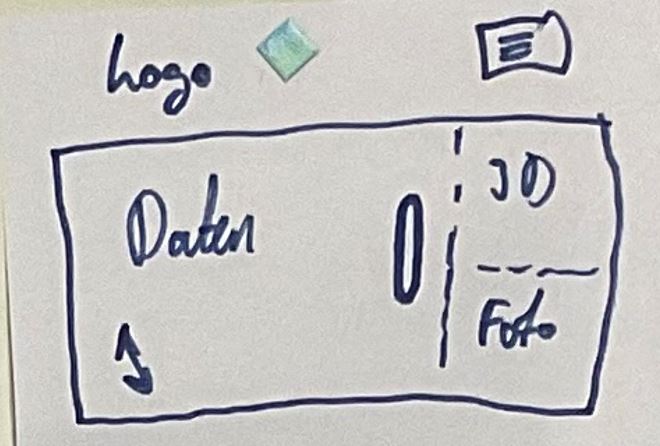 Logo
Daten
3D
Foto